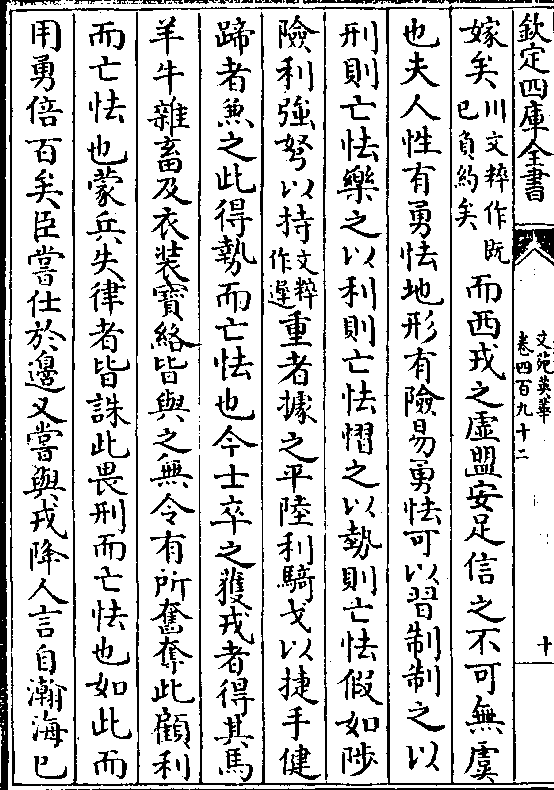 欽定四庫全書
文苑英華
卷四百九十二
十
嫁矣川文粹作既
已負約矣而西戎之虛盟安足信之不可無虞
也夫人性有勇怯地形有險易勇怯可以習制制之以
刑則亡怯樂之以利則亡怯慴之以勢則亡怯假如陟
險利強弩以持文粹
作遲重者據之平陸利騎戈以捷手健
蹄者兼之此得勢而亡怯也今士卒之獲戎者得其馬
羊牛雜畜及衣裝寶絡皆與之無令有所奮奪此顧利
而亡怯也蒙兵失律者皆誅此畏刑而亡怯也如此而
用勇倍百矣臣嘗仕於邊又嘗與戎降人言自瀚海已